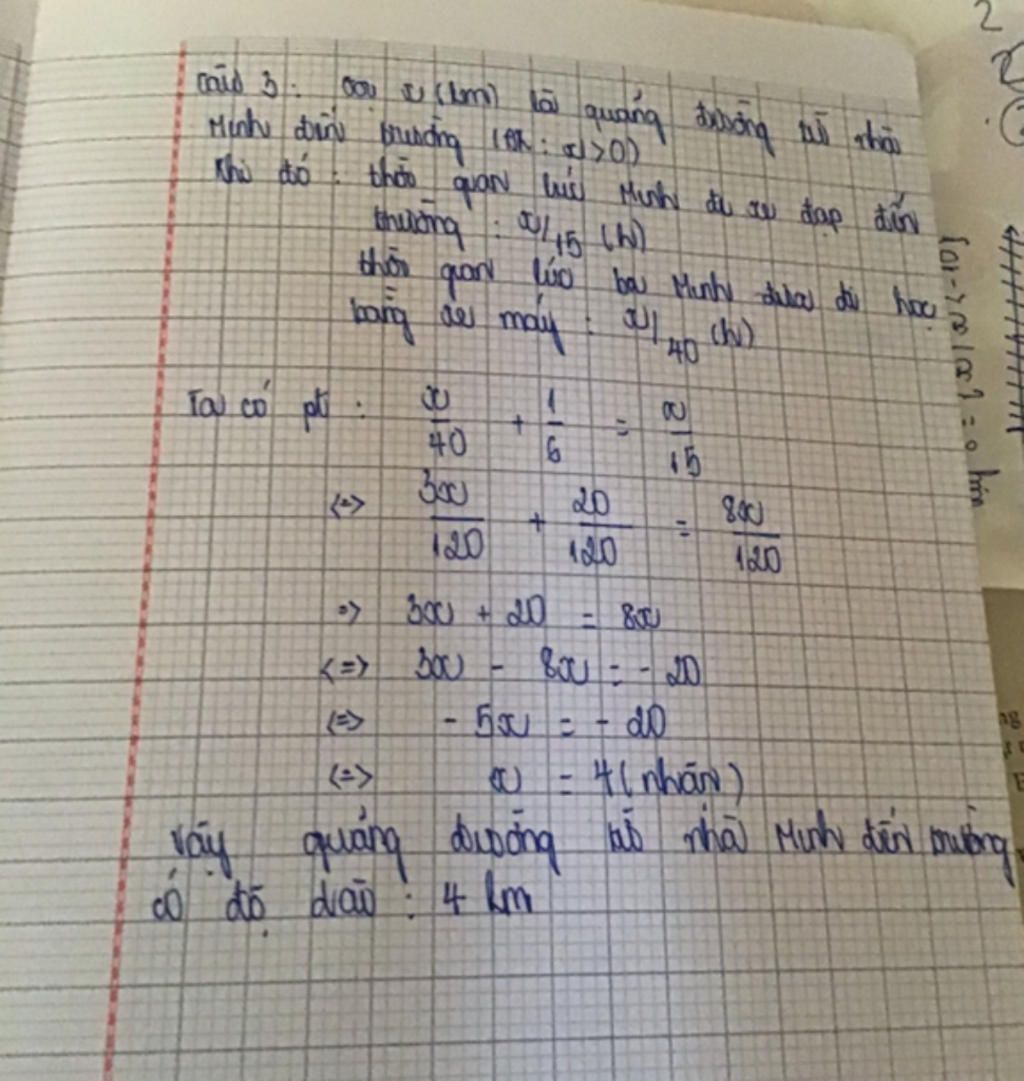 Câu 3: Gọi x (km) là quãng đường từ nhà
Minh đến trường (ĐK: x > 0)
Khi đó: thời gian lúc Minh đi xe đạp đến
trường: x/15 (h)
thời gian lúc ba Minh đưa đi học
bằng xe máy: x/40 (h)
Ta có pt: x/40 + 1/6 = x/15
<=> 3x/120 + 20/120 = 8x/120
=> 3x + 20 = 8x
<=> 3x - 8x = - 20
<=> - 5x = - 20
<=> x = 4 (nhận)
Vậy quãng đường từ nhà Minh đến trường
có độ dài: 4 km
2